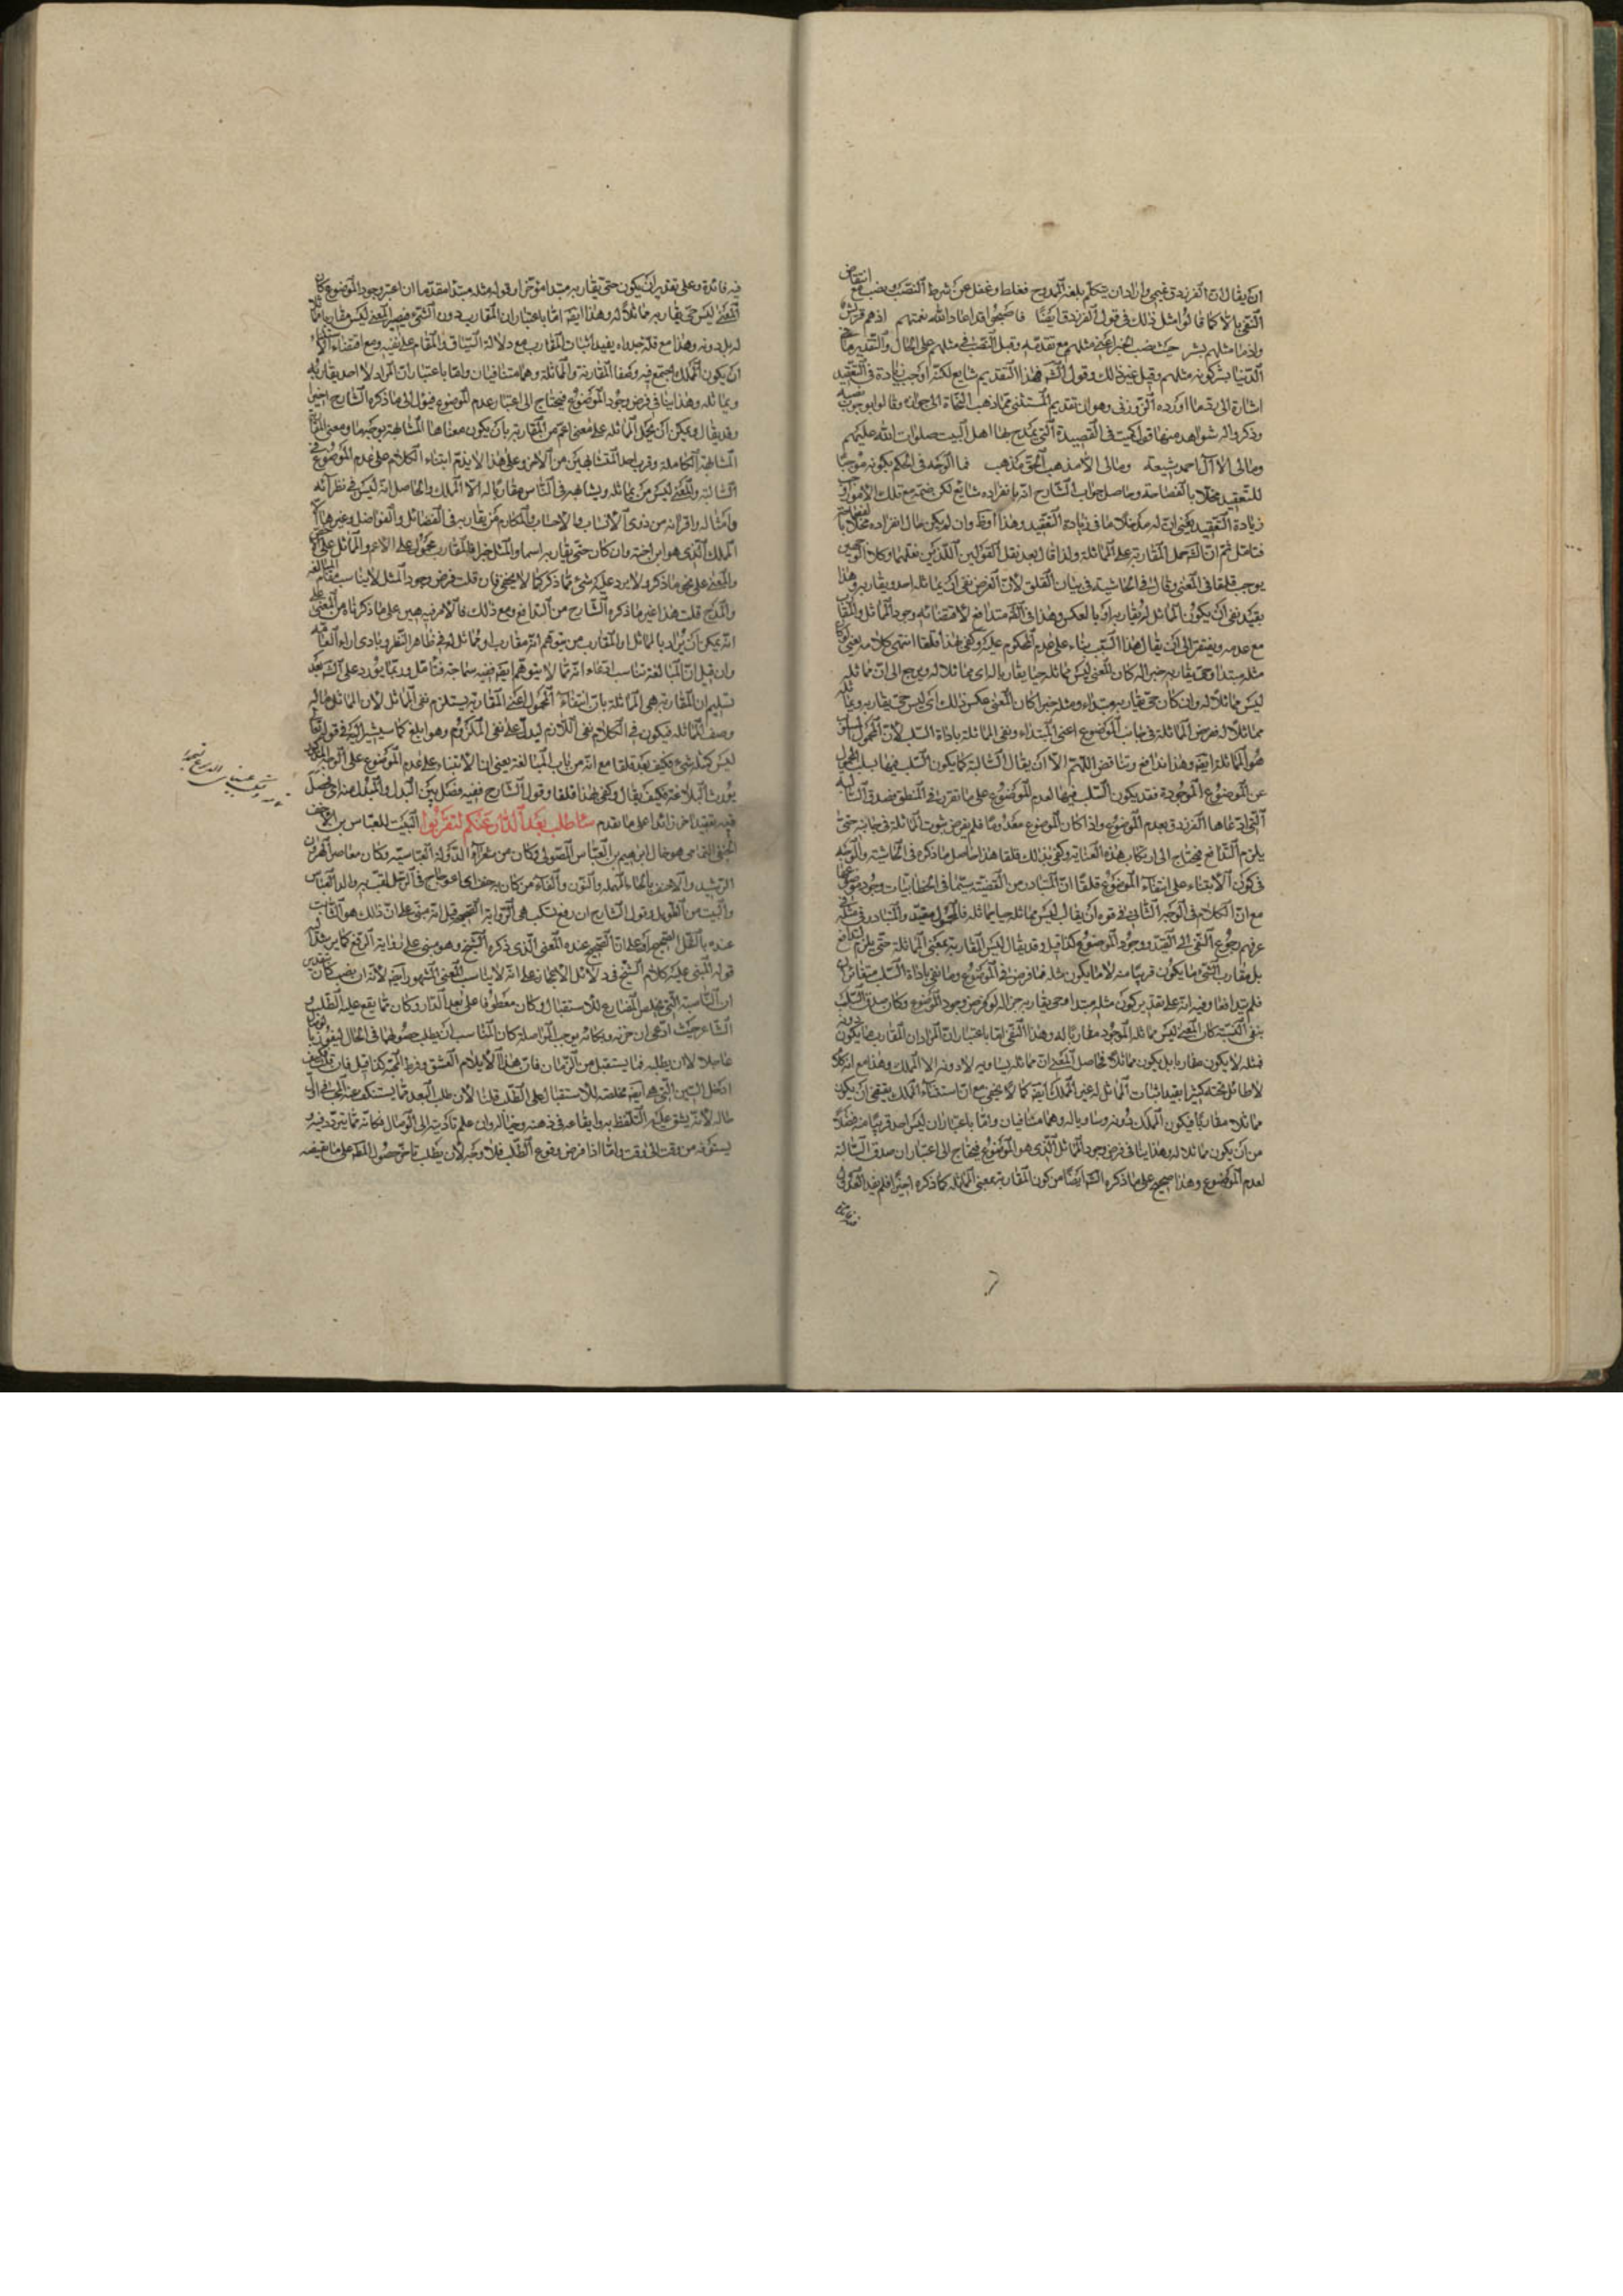 ان يقال ان الفرزدق تميمي واراد ان يتكلم بلغة الممدوح فغلط وغفل عن شرط النصب وهو عدم انتقاض
النفي بالا كما قالوا مثل ذلك في قول الفرزدق ايضا فاصبحوا قد اعاد الله نعمتهم اذ هم قريش
واذ ما مثلهم بشر حيث نصب الخبر اعني مثلهم مع تقدمه وقيل النصب في مثلهم على الحال والتقدير ما في
الدنيا بشر كونه مثلهم وقيل غير ذلك وقول الشه فهذا التقديم شايع لكنه اوجب زيادة في التعقيد
اشارة الى رد ما اورده الزوزني وهو ان تقديم المستثنى مما ذهب النحاة الى جوازه وقالوا بوجوب نصبه
وذكروا له شواهد منها قول كميت في القصيدة التي يمدح بها اهل البيت صلوات الله عليهم
وما لي الا آل احمد شيعة وما لي الا مذهب الحق مذهب فما الوجه في الحكم بكونه موجبا
للتعقيد مخلا بالفصاحة وحاصل جواب الشارح انه بانفراده شايع لكن ضمه مع تلك الامور اوجب
زيادة التعقيد يعني ان له مدخلا ما في زيادة التعقيد وهذا اوان لم يكن حال انفراده مخلا بالفصاحة
فتامل ثم ان القوم حمل المقاربة على المماثلة ولذا قال بعد نقل القولين اللذين نقلهما وكلا الوجهين
يوجب قلقا في المعنى وقال في الحاشية في بيان القلق لان الغرض نفي ان يماثله احد ويقاربه وهذا
يفيد نفي ان يكون المماثل له يقاربه او بالعكس وهذا في اللغة متدافع لاقتضائه وجود المماثل والمقارب
مع عدمه ويفتقر الى ان يقال هذا السلب بناء على عدم المحكوم عليه وكفى بهذا قلقا انتهى كلامه يعني لو كان
مثله مبتدا وحي يقاربه خبرا له كان المعنى ليس مماثله حيا يقاربه اي مماثلا له ويرجع الى ان مماثله
ليس مماثلا له وان كان حي يقاربه مبتداء ومثله خبرا كان المعنى عكس ذلك اي ليس حي يقاربه ويماثله
مماثلا له فرض المماثلة في جانب الموضوع اعني المبتداء ونفي المماثلة باداة السلب لان المحمول
هو المماثلة ايضا وهذا تدافع وتناقض اللهم الا ان يقال السالبة كما يكون السلب فيها بسلب المحمول
عن الموضوع الموجودة فقد يكون السلب فيها لعدم الموضوع على ما تقرر في المنطق فصدق السالبة
التي ادعاها الفرزدق بعدم الموضوع واذا كان الموضوع معدوما فلم يفرض ثبوت المماثلة في جانبه حتى
يلزم التدافع فيحتاج الى ارتكاب هذه العناية وكفى بذلك قلقا هذا حاصل ما ذكره في الحاشية والوجه
في كون الابتناء على انتفاء الموضوع قلقا ان المتبادر من القضية سيما في الخطابيات وجود موضوعها
مع ان الكلام في الوجه الثاني في قوة ان يقال ليس مماثله حيا يماثله فالمحمول مقيد والمتبادر في مثله
عرفهم رجوع النفي الى القيد ووجود الموضوع كذا قيل وقد يقال ليس المقاربة بمعنى المماثلة حتى يلزم التدافع
بل مقارب الشئ ما يكون قريبا منه لا ما يكون مثله فما فرض في الموضوع وما نفي باداة السلب متغايران
فلم يتدافعا وفيه انه على تقدير كون مثله مبتدا وحي يقاربه خبرا له لو فرض وجود الموضوع وكان صدق السلب
بنفي النسبة كان المعنى ليس مماثله الموجود مقاربا له وهذا النفي اما باعتبار ان المراد ان المقارب ما يكون دونه
فمثله لا يكون مقاربا بل يكون مماثلا فحاصل المعنى ان مماثله يساويه لا دونه الا الملك وهذا مع انه كلام
لا طائل تحته كثيرا يفيد اثبات المماثل له غير الملك ايضا كما لا يخفى مع ان استثناء الملك يقتضي ان يكون
مماثلا مقاربا فيكون الملك دونه ومساويا له وهما متنافيان واما باعتبار ان ليس احد قريبا منه فضلا
من ان يكون مماثلا له وهذا ينافي فرض وجود المماثل الذي هو الموضوع فيحتاج الى اعتبار ان صدق السالبة
لعدم الموضوع وهذا صحيح على ما ذكره الشه ايضا من كون المقاربة بمعنى المماثلة كما ذكره اخيرا فلم يفد العدول
فيه فائدة وعلى تقدير ان يكون حي يقاربه مبتدا مؤخرا وقوله مثله مبتدا مقدما ان اعتبر وجود الموضوع كان
المعنى ليس حي يقاربه مماثلا له وهذا ايضا اما باعتبار ان المقارب دون الشئ فيصير المعنى ليس مقاربه مماثلا
له بل دونه وهذا مع قلة جدواه يفيد اثبات المقارب مع دلالة السياق والمقام على نفيه ومع اقتضاء الاستثناء
ان يكون الملك اجتمع فيه وصفا المقاربة والمماثلة وهما متنافيان واما باعتبار ان المراد لا احد يقاربه
ويماثله وهذا ينافي فرض وجود الموضوع فيحتاج الى اعتبار عدم الموضوع فيؤل الى ما ذكره الشارح اخيرا
وقد يقال ويمكن ان يحمل المماثلة على معنى اعم من المقاربة بان يكون معناها المشابهة بوجه ما ومعنى المقاربة
المشابهة الكاملة وقرب احد المتشابهين من الآخر وعلى هذا لا يلزم ابتناء الكلام على عدم الموضوع في
السالبة والمعنى ليس من يماثله ويشابهه في الناس مقاربا له الا الملك والحاصل انه ليس في نظرائه
وامثاله واقرانه من ذوي الانساب والاحساب والمكارم من يقاربه في الفضائل والفواضل وغيرها الا
الملك الذي هو ابن اخته وان كان حي يقاربه اسما والمثل خبرا فالمقارب محمول على الاعم والمماثل على الاخص
والمعنى على نحو ما ذكر ولا يرد عليه شئ مما ذكر كما لا يخفى فان قلت فرض وجود المثل لا يناسب مقام المبالغة
والمدح قلت هذا غير ما ذكره الشارح من التدافع ومع ذلك فالامر فيه هين على ما ذكرنا من المعنى على
انه يمكن ان يراد بالمماثل او المقارب من يتوهم انه مقارب او مماثل له في ظاهر النظر وبادي الراي
وان قيل ان المبالغة تناسب ادعاء انه مما لا يتوهم ايضا ففيه سماجة فتامل وربما يورد على الشه بعد
تسليم ان المقاربة هي المماثلة بان انتفاء المحمول اعني المقاربة يستلزم نفي المماثل لان المماثل ماله
وصف المماثلة فيكون في الكلام نفي اللازم ليدل على نفي الملزوم وهو ابلغ كما سيشير اليه في قوله تعالى
ليس كمثله شئ فكيف يعد قلقا مع انه من باب المبالغة يعني ان الابتناء على عدم الموضوع على الوجه المذكور
يورث البلاغة فكيف يقال وكفى بهذا قلقا وقول الشارح ففيه فصل بين البدل والمبدل منه اي فصل
فيه تعقيد آخر زائدا على ما تقدم ساطلب بعد الدار عنكم لتقربوا البيت للعباس بن الاحنف
الحنفي اليمامي هو خال ابرهيم بن العباس الصولي وكان من شعراء الدولة العباسية وكان معاصرا لهرون
الرشيد والاحنف بالحاء المهملة والنون والفاء من كان به حنف اي اعوجاج في الرجل لقب به والد العباس
والبيت من الطويل وقول الشارح ان رفع تسكب هي الرواية الصحيحة قيل انه مبني على ان ذلك هو الثابت
عنده بالنقل الصحيح او على ان الصحيح عنده المعنى الذي ذكره الشيخ وهو مبني على رواية الرفع كما يرشد اليه
قوله المبني عليه كلام الشيخ في دلائل الاعجاز على انه لا يناسب المعنى المشهور ايضا لانه ان نصب كان بتقدير
ان الناصبة التي تخلص المضارع للاستقبال وكان معطوفا على بعد الدار وكان مما يقع عليه الطلب و
الشاعر حيث ادعى ان حزنه وبكائه يوجب المواصلة كان المناسب ان يطلب حصولهما في الحال ليفوز بالوصال
عاجلا لا ان يطلبه فيما يستقبل من الزمان فان هذا لا يلائم العشق وفرط المحبة كذا قيل فان قلت كيف
ادخل السين التي هي ايضا مخلصة للاستقبال على الطلب قلنا لان طلب البعد مما يستنكف عنه المحب في اول
حاله لانه يشق عليه التلفظ به وايقاعه في ذهنه وخياله وان علم تاديته الى الوصال فكانه مما يتردد فيه و
يسوفه من وقت الى وقت واما اذا فرض وقوع الطلب فلا وجه لان يطلب تاخر حصول المطه على ما يقتضيه